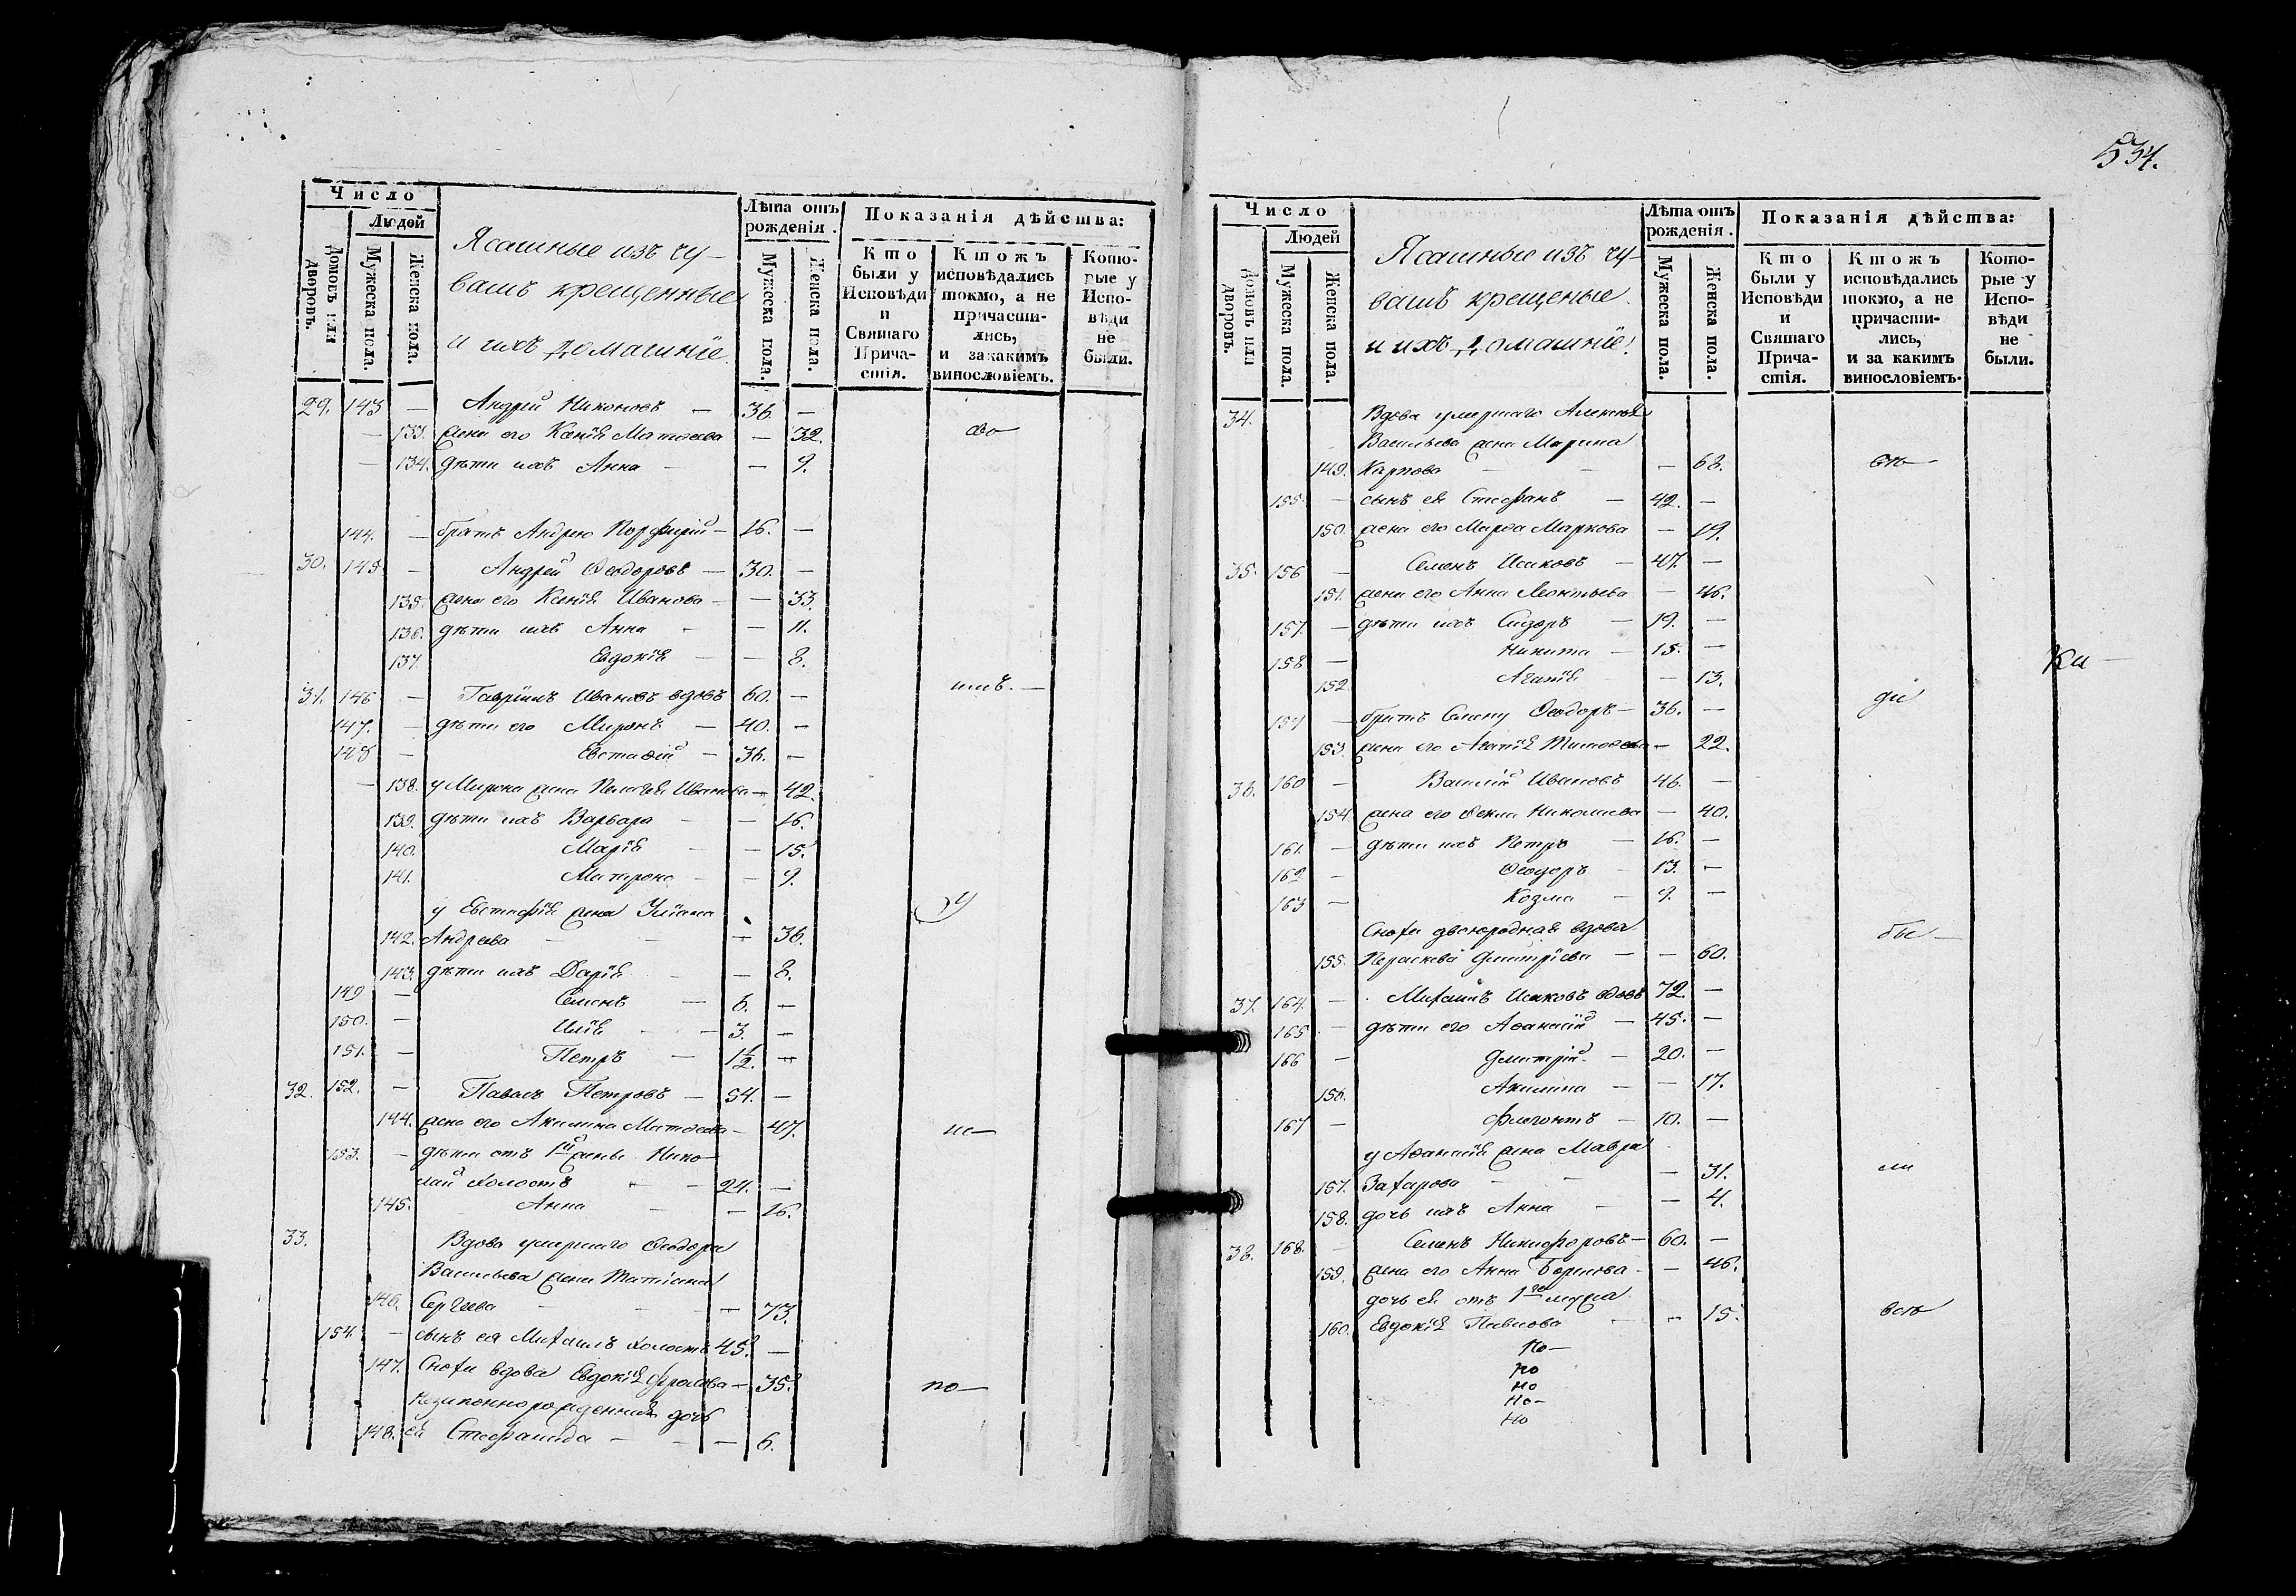 Число
Людей
Домовъ или дворовъ.
Мужеска пола.
Женска пола.
Ясашные изъ чу-
вашъ крещенные
и ихъ домашніе
Лѣта отъ рожденія.
Мужеска пола.
Женска пола.
Показанія дѣйства:
Кто были у Исповѣди и Святаго Прича-стія.
Ктожъ исповѣдались токмо, а не причасти-лись, и за какимъ винословіемъ.
Кото-рые у Испо-вѣди не были.
29. 143 — Андрей Никоновъ — 36. —
— 133. жена его Ксенія Матвеева — 32.
— 134. дѣти ихъ Анна — — 9.
144. — братъ Андрею Порфирій — 16. —
30. 145 — Андрей Ѳеодоровъ — 30. —
135. жена его Ксенія Иванова — — 33.
136. дѣти ихъ Анна — — 11.
137. Евдокія — — 8.
31. 146 — Гавріилъ Ивановъ вдовъ 60. —
147. — дѣти его Миронъ — 40. —
148 — Евстафій — 36. —
— 138. у Мирона жена Пелагея Иванова — 42.
139. дѣти ихъ Варвара — — 16.
140. Марія — — 15.
141. Матрона — — 9.
у Евстафія жена Уліана
142. Андреева — — — 36.
143. дѣти ихъ Дарія — — 8.
149 — Семенъ — 6. —
150. — Илія — — 3. —
151. — Петръ — 1½. —
32. 152. — Павелъ Петровъ — 54. —
144. жена его Акилина Матвеева — 47.
153. — дѣти отъ 1й жены Нико-
лай холостъ — — 24. —
145. Анна — — 16.
33. Вдова умершаго Ѳеодора
Васильева жена Татіана
146. Сергеева — — — 73.
154 — сынъ ея Михаилъ холостъ 45. —
147. Сноха вдова Евдокія Фролова — 35.
Незаконнорожденная дочь
148. ей Стефанида — — — 6.
по—
534.
Число
Людей
Домовъ или дворовъ.
Мужеска пола.
Женска пола.
Ясашные изъ чу-
вашъ крещеные
и ихъ домашніе.
Лѣта отъ рожденія.
Мужеска пола.
Женска пола.
Показанія дѣйства:
Кто были у Исповѣди и Святаго Прича-стія.
Ктожъ исповѣдались токмо, а не причасти-лись, и за какимъ винословіемъ.
Кото-рые у Испо-вѣди не были.
34. Вдова умершаго Алексѣя
Васильева жена Марина
149. Карпова — — — 68.
155. — сынъ ея Стефанъ — 42. —
150. жена его Марѳа Маркова — 19.
35. 156 — Семенъ Исаковъ — 47. —
151. жена его Анна Леонтьева — 46.
157. — дѣти ихъ Сидоръ — 19. —
158 — Никита — 15. —
152. Агапія — 13.
— братъ Семену Ѳеодоръ — 36. —
153. жена его Агапія Тимоѳеева — 22.
36. 160 — Василій Ивановъ 46. —
154 жена его Ѳекла Николаева — 40.
161. — дѣти ихъ Петръ — 16. —
162 — Ѳеодоръ — 13. —
163 — Козма — 9. —
Сноха двоюродная вдова
155. Параскева Дмитріева — — 60.
бы—
37. 164. — Михаилъ Исаковъ вдовъ 72. —
165 — дѣти его Аѳанасій — 45. —
166 — Дмитрій — 20. —
156. Акилина — — 17.
167 — Флегонтъ — 10. —
у Аѳанасія жена Мавра
157. Захарова — — — 31.
ли
158. дочь ихъ Анна — — 4.
38. 168. — Семенъ Никифоровъ — 60. —
159. жена его Анна Борисова — — 46.
дочь ея отъ 1го мужа
160. Евдокія Павлова — — 15.
всѣ